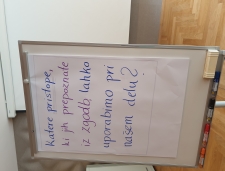 Katere pristope,
ki jih prepoznate
iz zgodb lahko
uporabimo pri
našem delu?